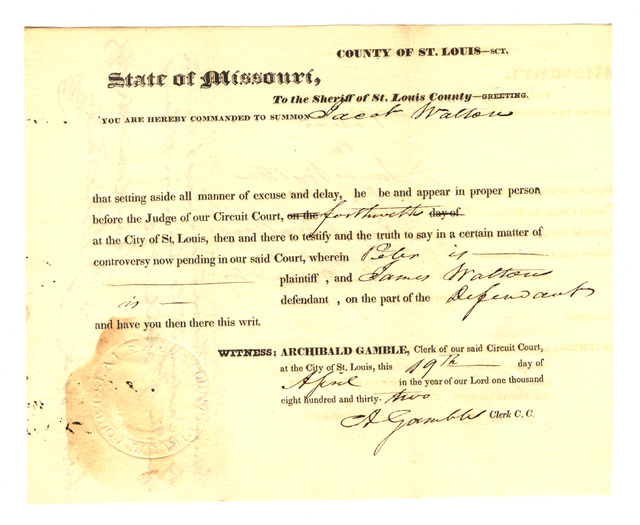 COUNTY OF ST. LOUIS—SCT.
State of Missouri,
To the Sheriff of St. Louis County—GREETING.
YOU ARE HEREBY COMMANDED TO SUMMON Jacob Walton
that setting aside all manner of excuse and delay, he be and appear in proper person
before the Judge of our Circuit Court, on the forthwith day of
at the City of St. Louis, then and there to testify and the truth to say in a certain matter of
controversy now pending in our said Court, wherein Peter is —
plaintiff , and James Walton
is — defendant , on the part of the Defendant
and have you then there this writ.
WITNESS: ARCHIBALD GAMBLE, Clerk of our said Circuit Court,
at the City of St. Louis, this 19th day of
April in the year of our Lord one thousand
eight hundred and thirty-two
A Gamble Clerk C. C.